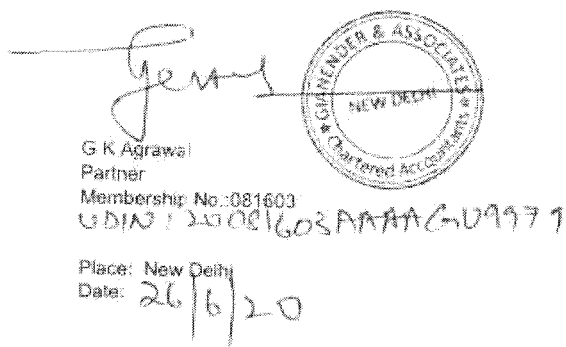 GIANENDER & ASSOCIATES
NEW DELHI
Chartered Accountants
G K Agrawal
Partner
Membership No.:081603
UDIN: 20081603AAAAGU9979
Place: New Delhi
Date: 26/6/20